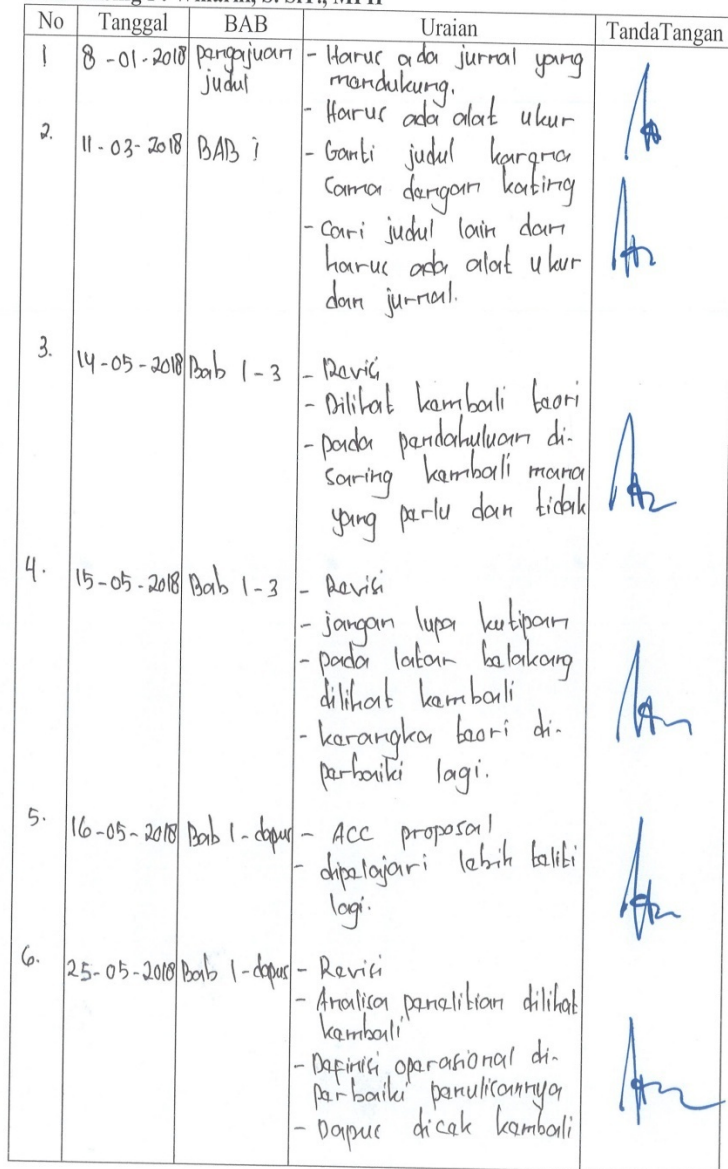 S. SiT., MPH
No Tanggal BAB Uraian TandaTangan
1 8-01-2018 pengajuan - Harus ada jurnal yang
judul mendukung.
- Harus ada alat ukur
2. 11-03-2018 BAB 1 - Ganti judul karena
sama dengan kating
- Cari judul lain dan
harus ada alat ukur
dan jurnal.
3. 14-05-2018 Bab 1-3 - Revisi
- Dilihat kembali teori
- pada pendahuluan di-
saring kembali mana
yang perlu dan tidak
4. 15-05-2018 Bab 1-3 - Revisi
- jangan lupa kutipan
- pada latar belakang
dilihat kembali
- kerangka teori di-
perbaiki lagi.
5. 16-05-2018 Bab 1-dapus - ACC proposal
- dipelajari lebih teliti
lagi.
6. 25-05-2018 Bab 1-dapus - Revisi
- Analisa penelitian dilihat
kembali
- Definisi operasional di-
perbaiki penulisannya
- Dapus dicek kembali